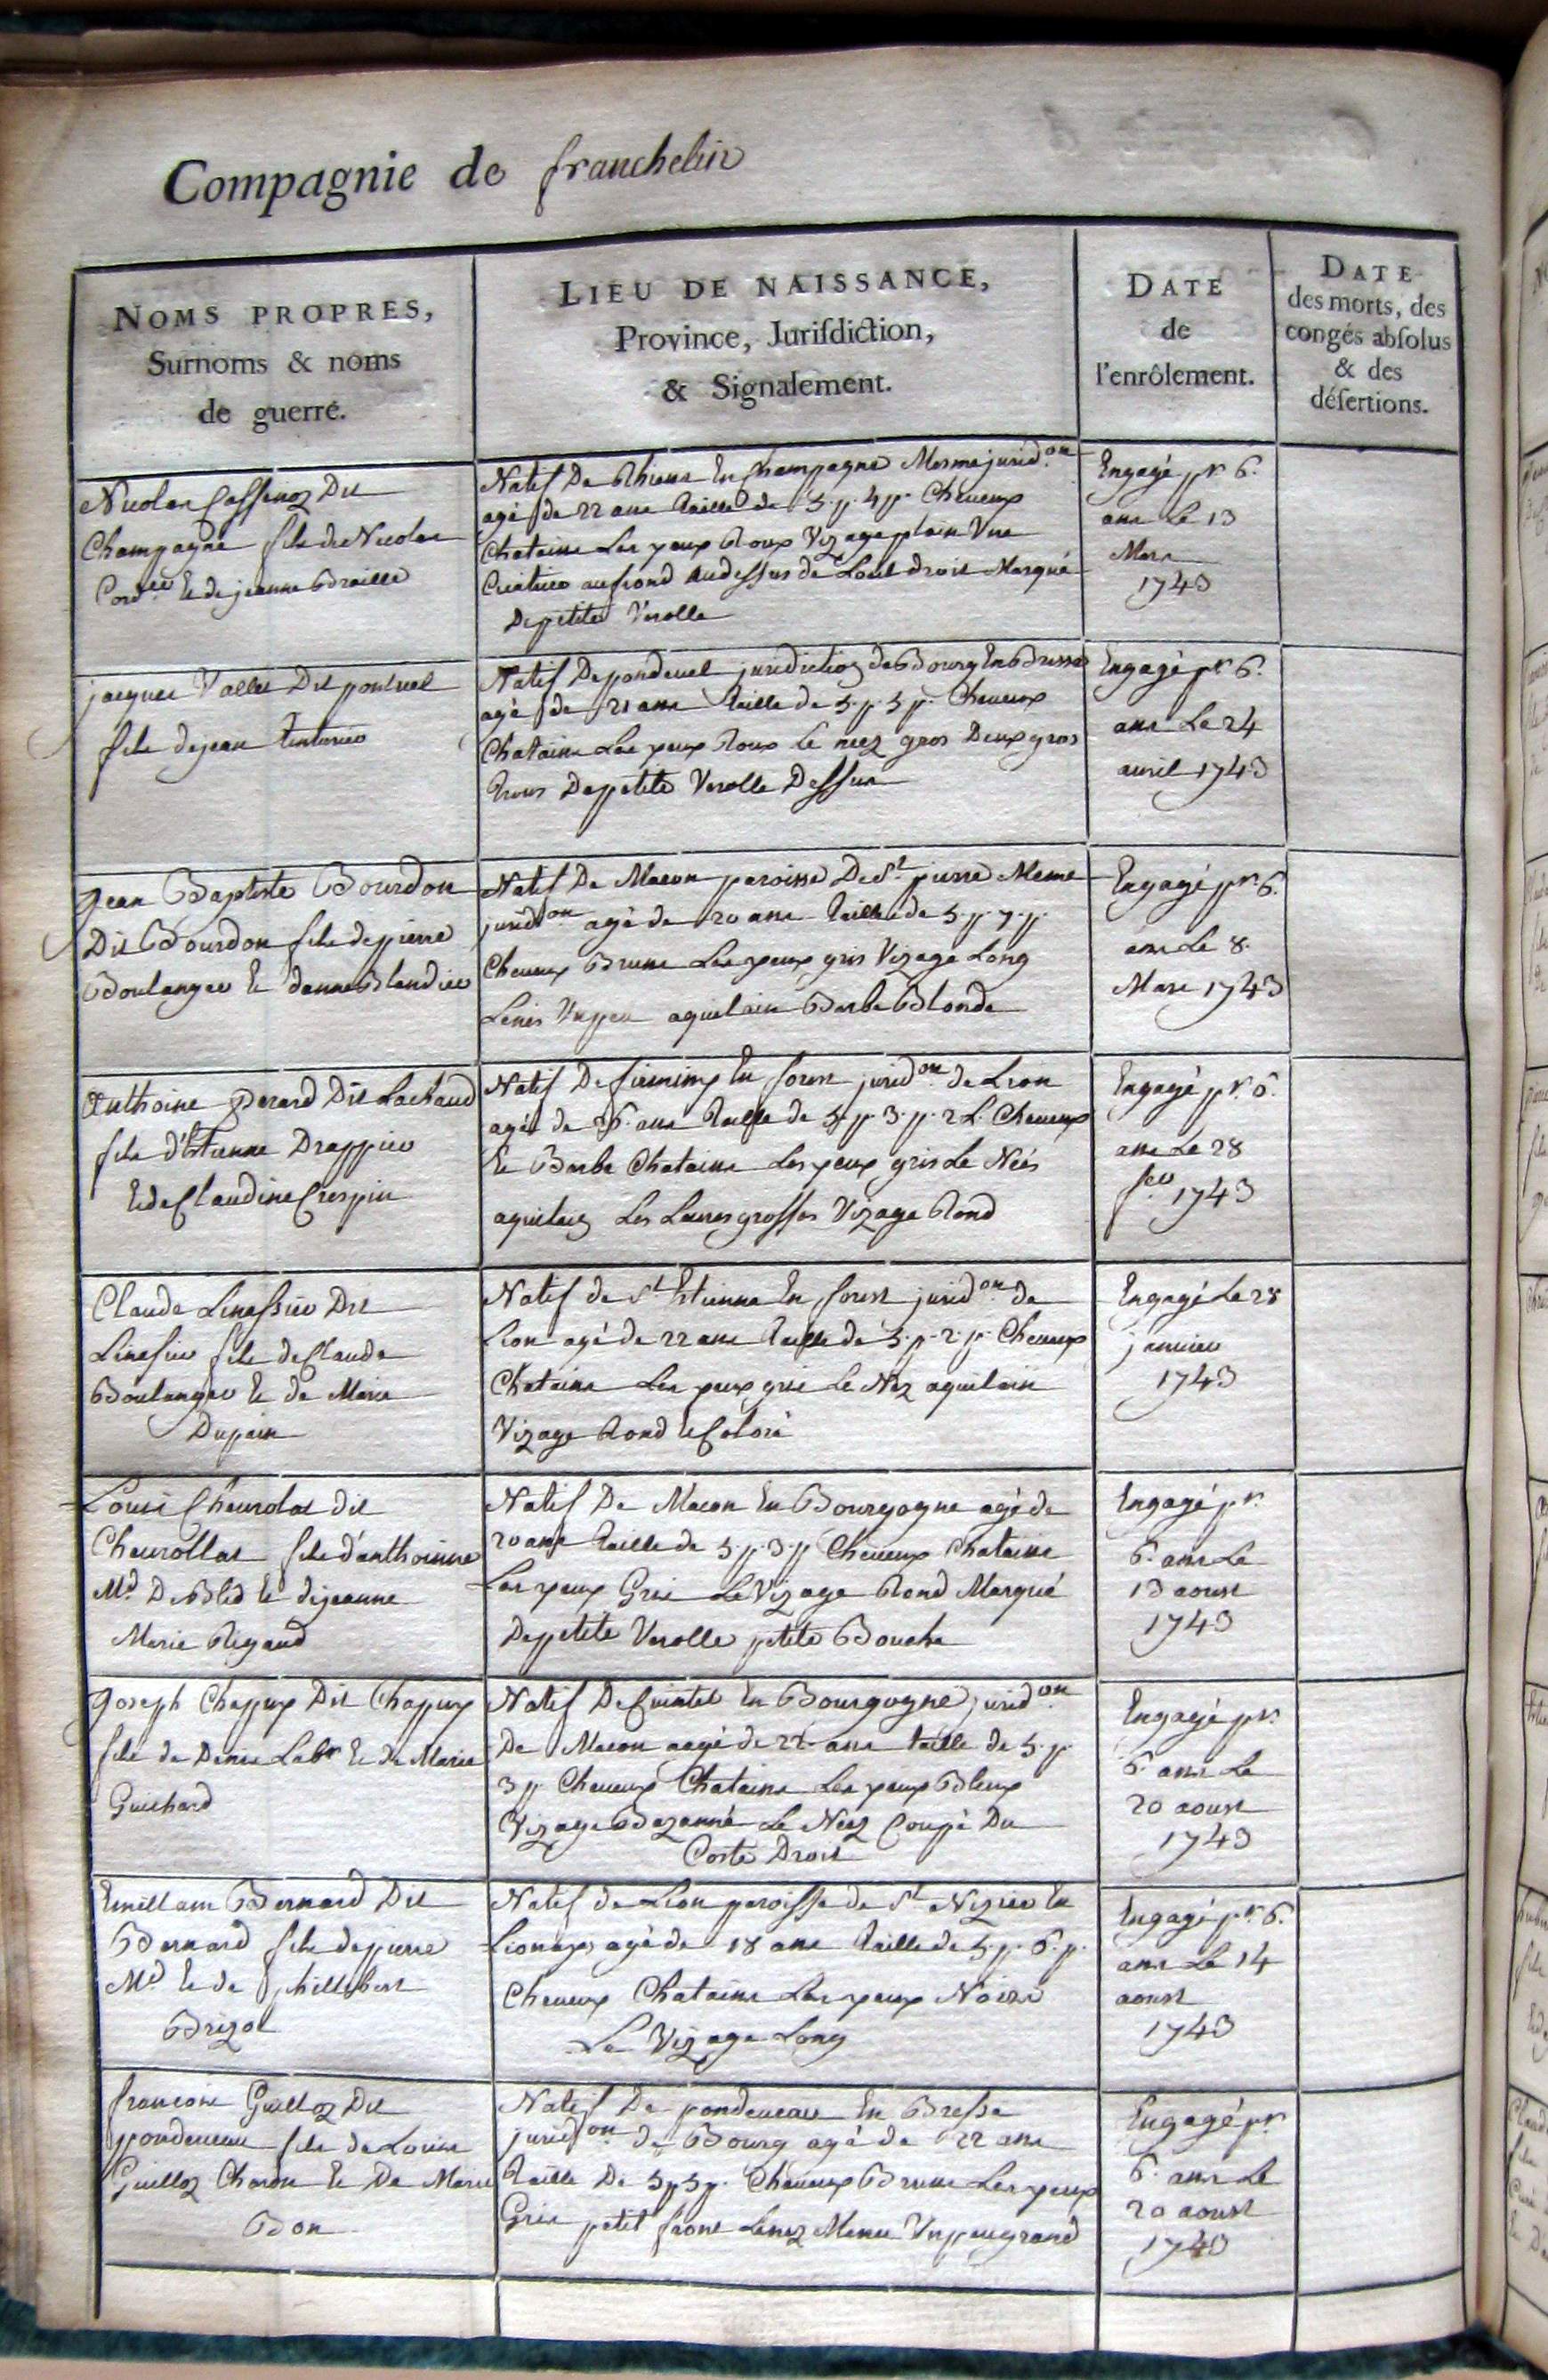 Compagnie de franchelin
NOMS PROPRES,
Surnoms & noms
de guerre.
LIEU DE NAISSANCE,
Province, Jurisdiction,
& Signalement.
DATE
de
l'enrôlement.
DATE
des morts, des
congés absolus
& des
désertions.
Nicolas Cassenoz Dit
Champagne fils de Nicolas
Cord.er Et de jeanne Braille
Natif De Rhiems En Champagne Mesme jurid.on
agé de 22 ans taille de 5. p. 4 p. Cheueux
Chatains Les yeux Roux Vizage plain Vne
Cicatrice au frond Audessus de L'œil droit Marqué
De petite Verolle
Engagé pr. 6.
ans Le 13
Mars
1743
jacques Vallet Dit pontuel
fils de jean teinturier
Natif De pondeuel juridiction de Bourg En Bresse
agé de 21 ans taille de 5. p. 5 p. Cheueux
Chatains Les yeux Roux Le nez gros Deux gros
trous De petite Verolle Dessus
Engagé pr. 6.
ans Le 24
auril 1743
Jean Baptiste Bourdon
Dit Bourdon fils de pierre
Boulanger Et d'anne Blandier
Natif De Macon paroisse De St. pierre Meme
jurid.on agé de 20 ans taille de 5. p. 7. p.
Cheueux Bruns Les yeux gris Vizage Long
Le nés Vn peu aquilain Barbe Blonde
Engagé pr. 6.
ans Le 8.
Mars 1743
Anthoine perard Dit Lachaud
fils d'Etienne Drappier
Et de Claudine Crespin
Natif De firminy En forest jurid.on de Lion
agé de 26. ans taille de 5 p. 3. p. 2 L. Cheueux
Et Barbe Chatains Les yeux gris Le Nés
aquilain Les Leures grosses Vizage Rond
Engagé pr. 6.
ans Le 28
feu. 1743
Claude Linossier Dit
Linossier fils de Claude
Boulanger Et de Marie
Dupain
Natif de St. Etienne En forest jurid.on de
Lion agé de 22 ans taille de 5. p. 2. p. Cheueux
Chatains Les yeux gris Le Nez aquilain
Vizage Rond Et Coloré
Engagé Le 28
januier
1743
Louis Cheurolat dit
Cheurollat fils d'anthoinne
Md. De Bled Et de jeanne
Marie Rigaud
Natif De Macon En Bourgogne agé de
20 ans taille de 5. p. 3. p. Cheueux Chatains
Les yeux Gris Le Vizage Rond Marqué
De petite Verolle petite Bouche
Engagé pr.
6. ans Le
13 aoust
1743
Joseph Chapuy Dit Chapuy
fils de Denis Labr. Et de Marie
Guichard
Natif De Cuintel En Bourgogne jurid.on
De Macon aagé de 22 ans taille de 5. p.
3 p. Cheueux Chatains Les yeux Bleux
Vizage Bazanné Le Néez Coupé Du
Costé Droit
Engagé pr.
6. ans Le
20 aoust
1743
Emilland Bernard Dit
Bernard fils de pierre
Md. Et de phillebert
Brizol
Natif de Lion paroisse de St. Nizier En
Lionnois agé de 18 ans taille de 5. p. 6. p.
Cheueux Chatains Les yeux Noirs
Le Vizage Long
Engagé pr. 6.
ans Le 14
aoust
1743
francois Guilloz Dit
pondeueau fils de Louis
Guilloz Charon Et De Marie
Bon
Natif De pondeueau En Bresse
jurid.on de Bourg agé de 22 ans
taille De 5 p 5 p. Cheueux Bruns Les yeux
Gris petit front Le nez Menu Vn peu grand
Engagé pr.
6. ans Le
20 aoust
1743